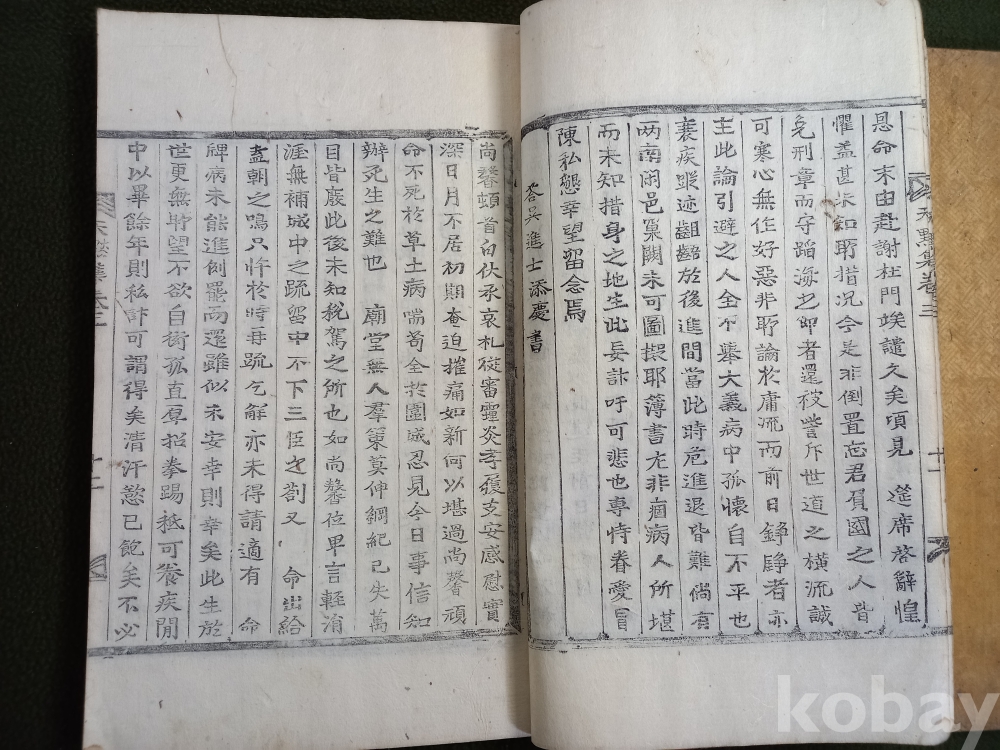 恩命末由趨謝杜門竢譴久矣頃見 筵席啓辭惶
懼益甚未知所措況今是非倒置忘君負國之人皆
免刑章而守蹈海之節者還被詈斥世道之橫流誠
可寒心無作好惡非所論於庸流而前日錚錚者亦
主此論引避之人全不擧大義病中孤懷自不平也
衰疾蹤迹齟齬於後進間當此時危進退皆難倘有
兩南閑邑窠闕未可圖擬耶簿書尤非痼病人所堪
而未知措身之地生此妄計吁可悲也專恃眷愛冒
陳私懇幸望留念焉
答吳進士添慶書
尚馨頓首白伏承哀札從審霾炎孝履支安感慰實
深日月不居初期奄迫摧痛如新何以堪過尚馨頑
命不死於草土病喘苟全於圍城忍見今日事信知
辦死生之難也 廟堂無人羣策莫伸綱紀已失萬
目皆廢此後未知稅駕之所也如尚馨位卑言輕涓
涯無補城中之疏留中不下三臣之劄又 命出給
盖朝之鳴只忤於時再疏乞解亦未得請適有 命
牌病未能進劍罷而還雖似未安幸則幸矣此生於
世更無所望不欲自衒孤直厚招拳踢秪可養疾閒
中以畢餘年則私計可謂得矣清汗慾已飽矣不必
天默集卷三
十二
kobay